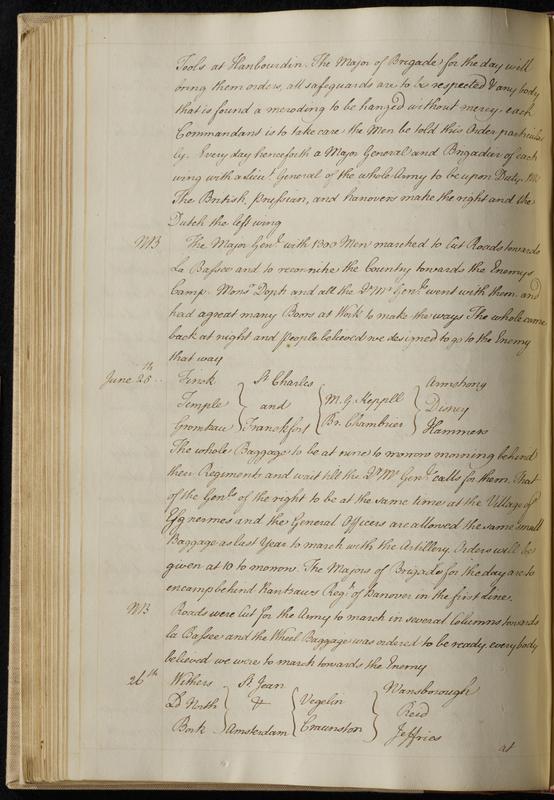 Tools at Hanbourdin. The Major of Brigade for the day will
bring them orders, all safeguards are to be respected & any body
that is found a meroding to be hanged without mercy each
Commandant is to take care the Men be told this Order particular
ly. Every day henceforth a Major General and Brigadier of each
wing with a Lieut. General of the whole Army to be upon Duty.
The British, Prussian, and hanovers make the right and the
Dutch the left wing
NB The Major Genl. with 1300 Men marched to Cut Roads towards
La Bassee and to reconitre the Country towards the Enemys
Camp. Monsr. Doph and all the Qr Mr Genls. went with them. and
had a great many Boors at Work to make the ways The whole came
back at night and people believed we designed to go to the Enemy
that way
June 25th Finck St. Charles Armstrong
Temple and M. G. Keppell Disney
Grontau Franckfort Br. Chambrier Hammers
The whole Baggage to be at nine to morrow morning behind
their Regiments and wait till the Qr Mr Genl. calls for them. That
of the Genls. of the right to be at the same time at the Village of
Esgnermes and the General Officers are allowed the same small
Baggage as last Year to march with the Artillery. Orders will be
given at 10 to morrow. The Majors of Brigade for the day are to
encamp behind Rantzaws Regt. of Hanover in the first line.
NB Roads were Cut for the Army to march in several Columns towards
la Bassee and the Wheel Baggage was ordered to be ready. every body
believed we were to march towards the Enemy
26th Withers St. Jean Wansborough
Ld North & Vegelin Reid
Bork Amsterdam Craunston Jeffries
at